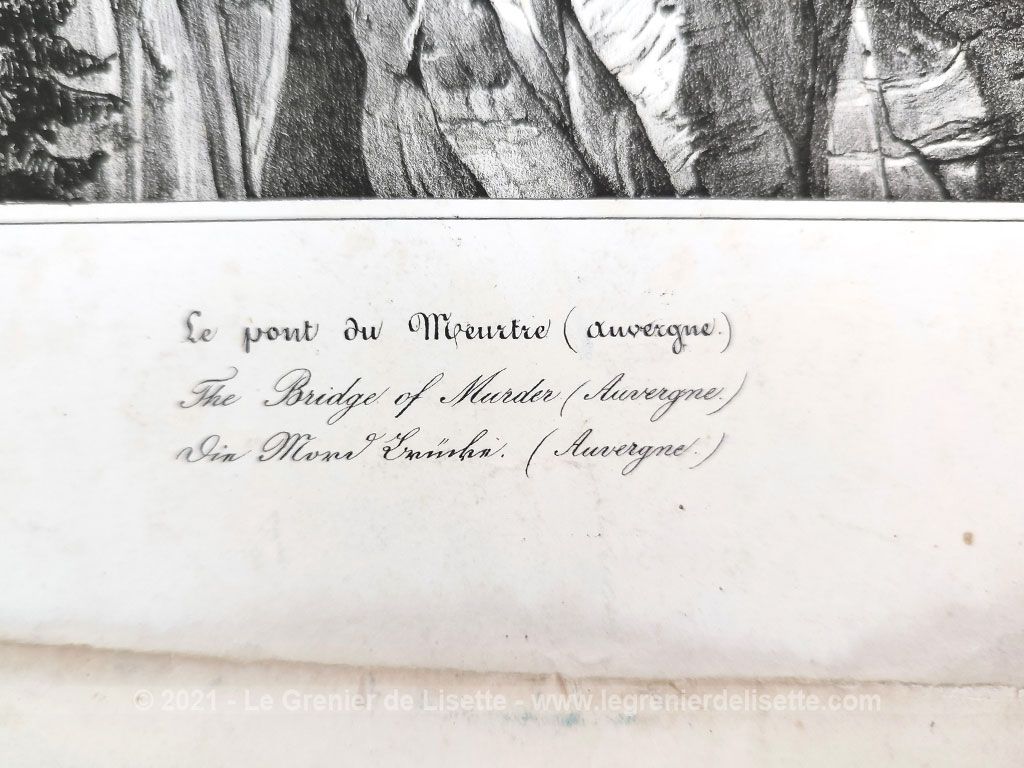 Le pont du Meurtre (Auvergne.)
The Bridge of Murder (Auvergne.)
Die Mord Brücke. (Auvergne.)
© 2021 - Le Grenier de Lisette - www.legrenierdelisette.com